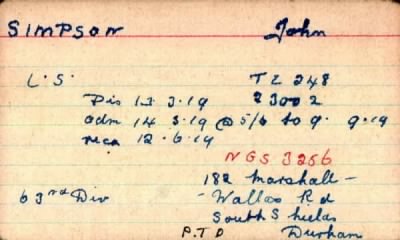 SIMPSON John
L.S. TZ 248
Dis 13 3.19 23002
adm 14 3.19 @ 5/6 to 9. 9.19
12.6.19
NGS 3256
182 Marshall-
63rd Div -Wallas Rd
South Shields
P.T.O Durham